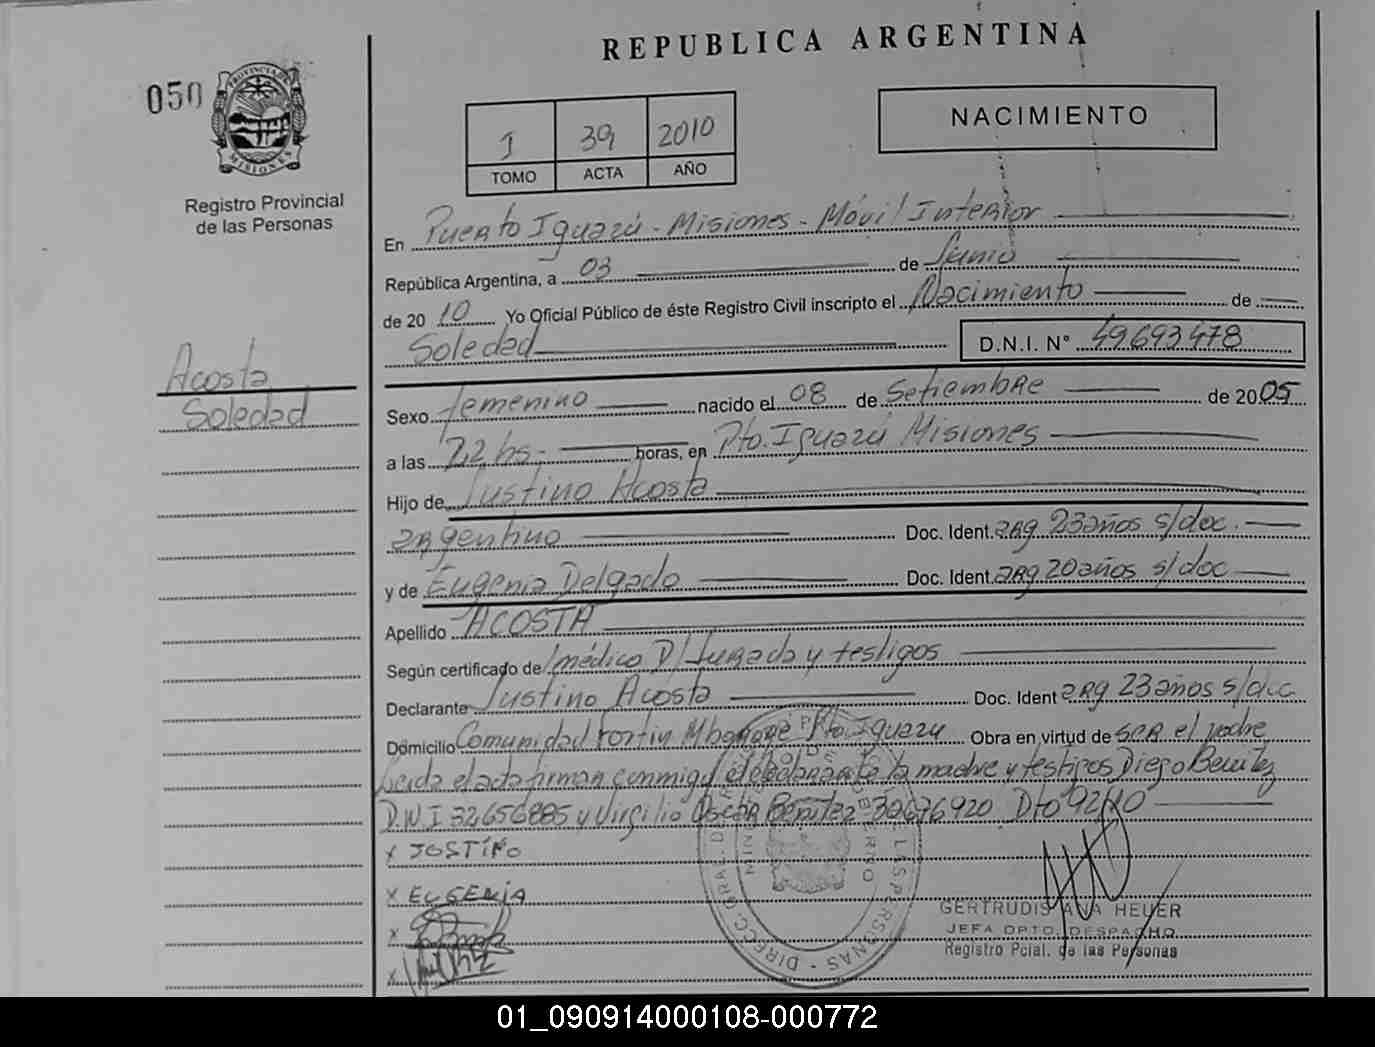 REPUBLICA ARGENTINA
050
PROVINCIA DE MISIONES
Registro Provincial
de las Personas
I 39 2010
TOMO ACTA AÑO
NACIMIENTO
En Puerto Iguazú - Misiones - Móvil Interior
República Argentina, a 03 de Junio
de 20 10 Yo Oficial Público de éste Registro Civil inscripto el Nacimiento de
Soledad D.N.I. N° 49.693.478
Acosta
Soledad
Sexo femenino nacido el 08 de Setiembre de 2005
a las 22 hs. horas, en Pto. Iguazú Misiones
Hijo de Justino Acosta
argentino Doc. Ident. arg 23 años s/doc.
y de Eugenia Delgado Doc. Ident. arg. 20 años s/doc
Apellido ACOSTA
Según certificado de médico D/Jurada y testigos
Declarante Justino Acosta Doc. Ident arg 23 años s/doc
Domicilio Comunidad Fortin Mborore Pto. Iguazu Obra en virtud de ser el padre
Leida el acta firman conmigo el declarante la madre y testigos Diego Benitez
D.N.I 32656885 y Virgilio Oscar Benitez 30676920 Dto 92/10
x JOSTINO
x EUGENIA
x
x
GERTRUDIS ANA HEUER
JEFA DPTO. DESPACHO
Registro Pcial. de las Personas
01_090914000108-000772